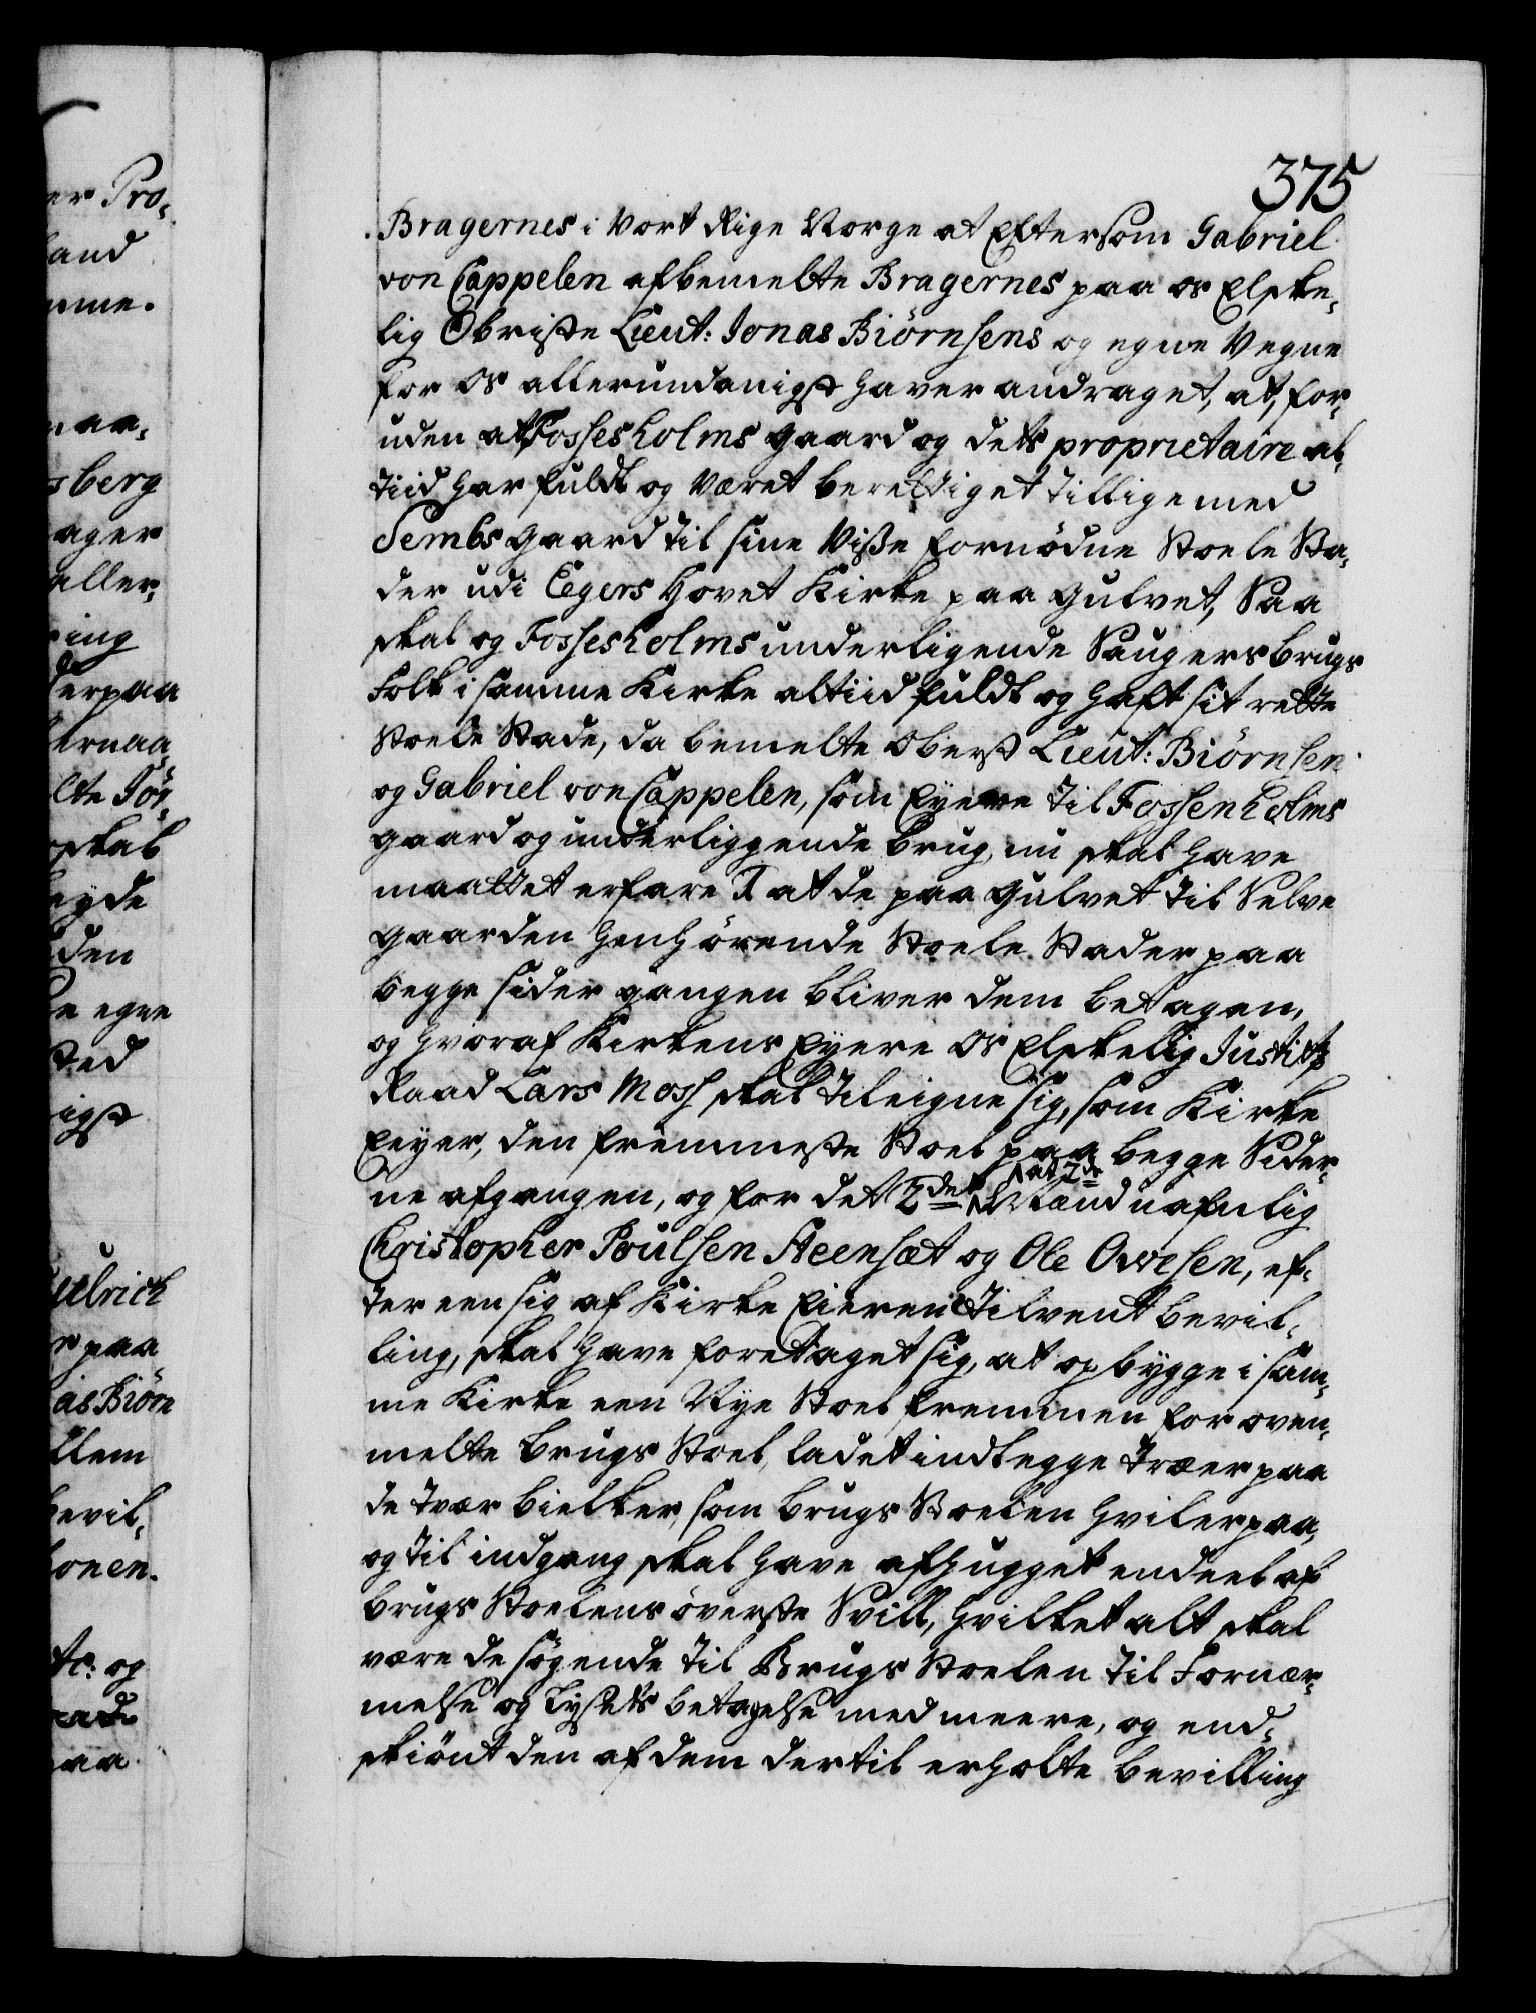 er Pro,
land
mme.
naa,
sberg
ager
aller,
ring
derpaa
hernaa
lte Jör,
skab
eyde
den
egne
sted
igst
Ulrich
paa
as Biörn
llem
bevil,
onen.
tc: og
paa
375
Bragernes i Vort Rige Norge at Eftersom Gabriel
von Cappelen afbemelte Bragernes paa os Elske,
lig Obriste Lieut: Jonas Biörnsens og egne Vegne
for Os allerundanigst haver andraget, at, for,
uden at Fossesholms gaard og dets proprietaire al,
tiid har fuldt og været berettiget tillige med
Sembs gaard til sine Visse fornödne Stoele Sta,
der udi Egers Hovet Kirke paa Gulvet, Saa
skal og Fossesholms underligende Saugers brugs
Folk i samme Kirke altiid fuldt og haft sit rette
Stoele Stade, da bemelte Oberst Lieut: Biörnsen
og Gabriel von Cappelen, som Eyere til Fossenholms
gaard og underliggende brug, nu skal have
maattet erfare 1 at de paa Gulvet til Selve
gaarden henhörende Stoele Stader paa
begge sider gangen bliver dem betagen,
og hvoraf Kirkens Eyere Os Elskelig Justitz
Raad Lars Moss skal tileigne sig, som Kirke
Eyer, den fremmeste Stoel paa begge Sider,
ne afgangen, og for det 2det at 2de Mænd nafnlig
Christopher Poulsen Steensæt og Ole Ovesen, ef,
ter een sig af Kirke Eieren tilvent bevil,
ling, skal have foretaget sig, at opbygge i sam,
me Kirke een Nye Stoel fremmen for oven,
melte brugs Stoel, ladet indlegge træer paa
de tvær bielker, som brugs Stoelen hviler paa,
og til indgang skal have afhugget endeel af
brugs Stoelens överste Svill, hvilket alt skal
være de sögende til Brugs Stoelen til Fornær,
melse og Lysets betagelse med meere, og end,
skiönt den af dem dertil erholte bevilling